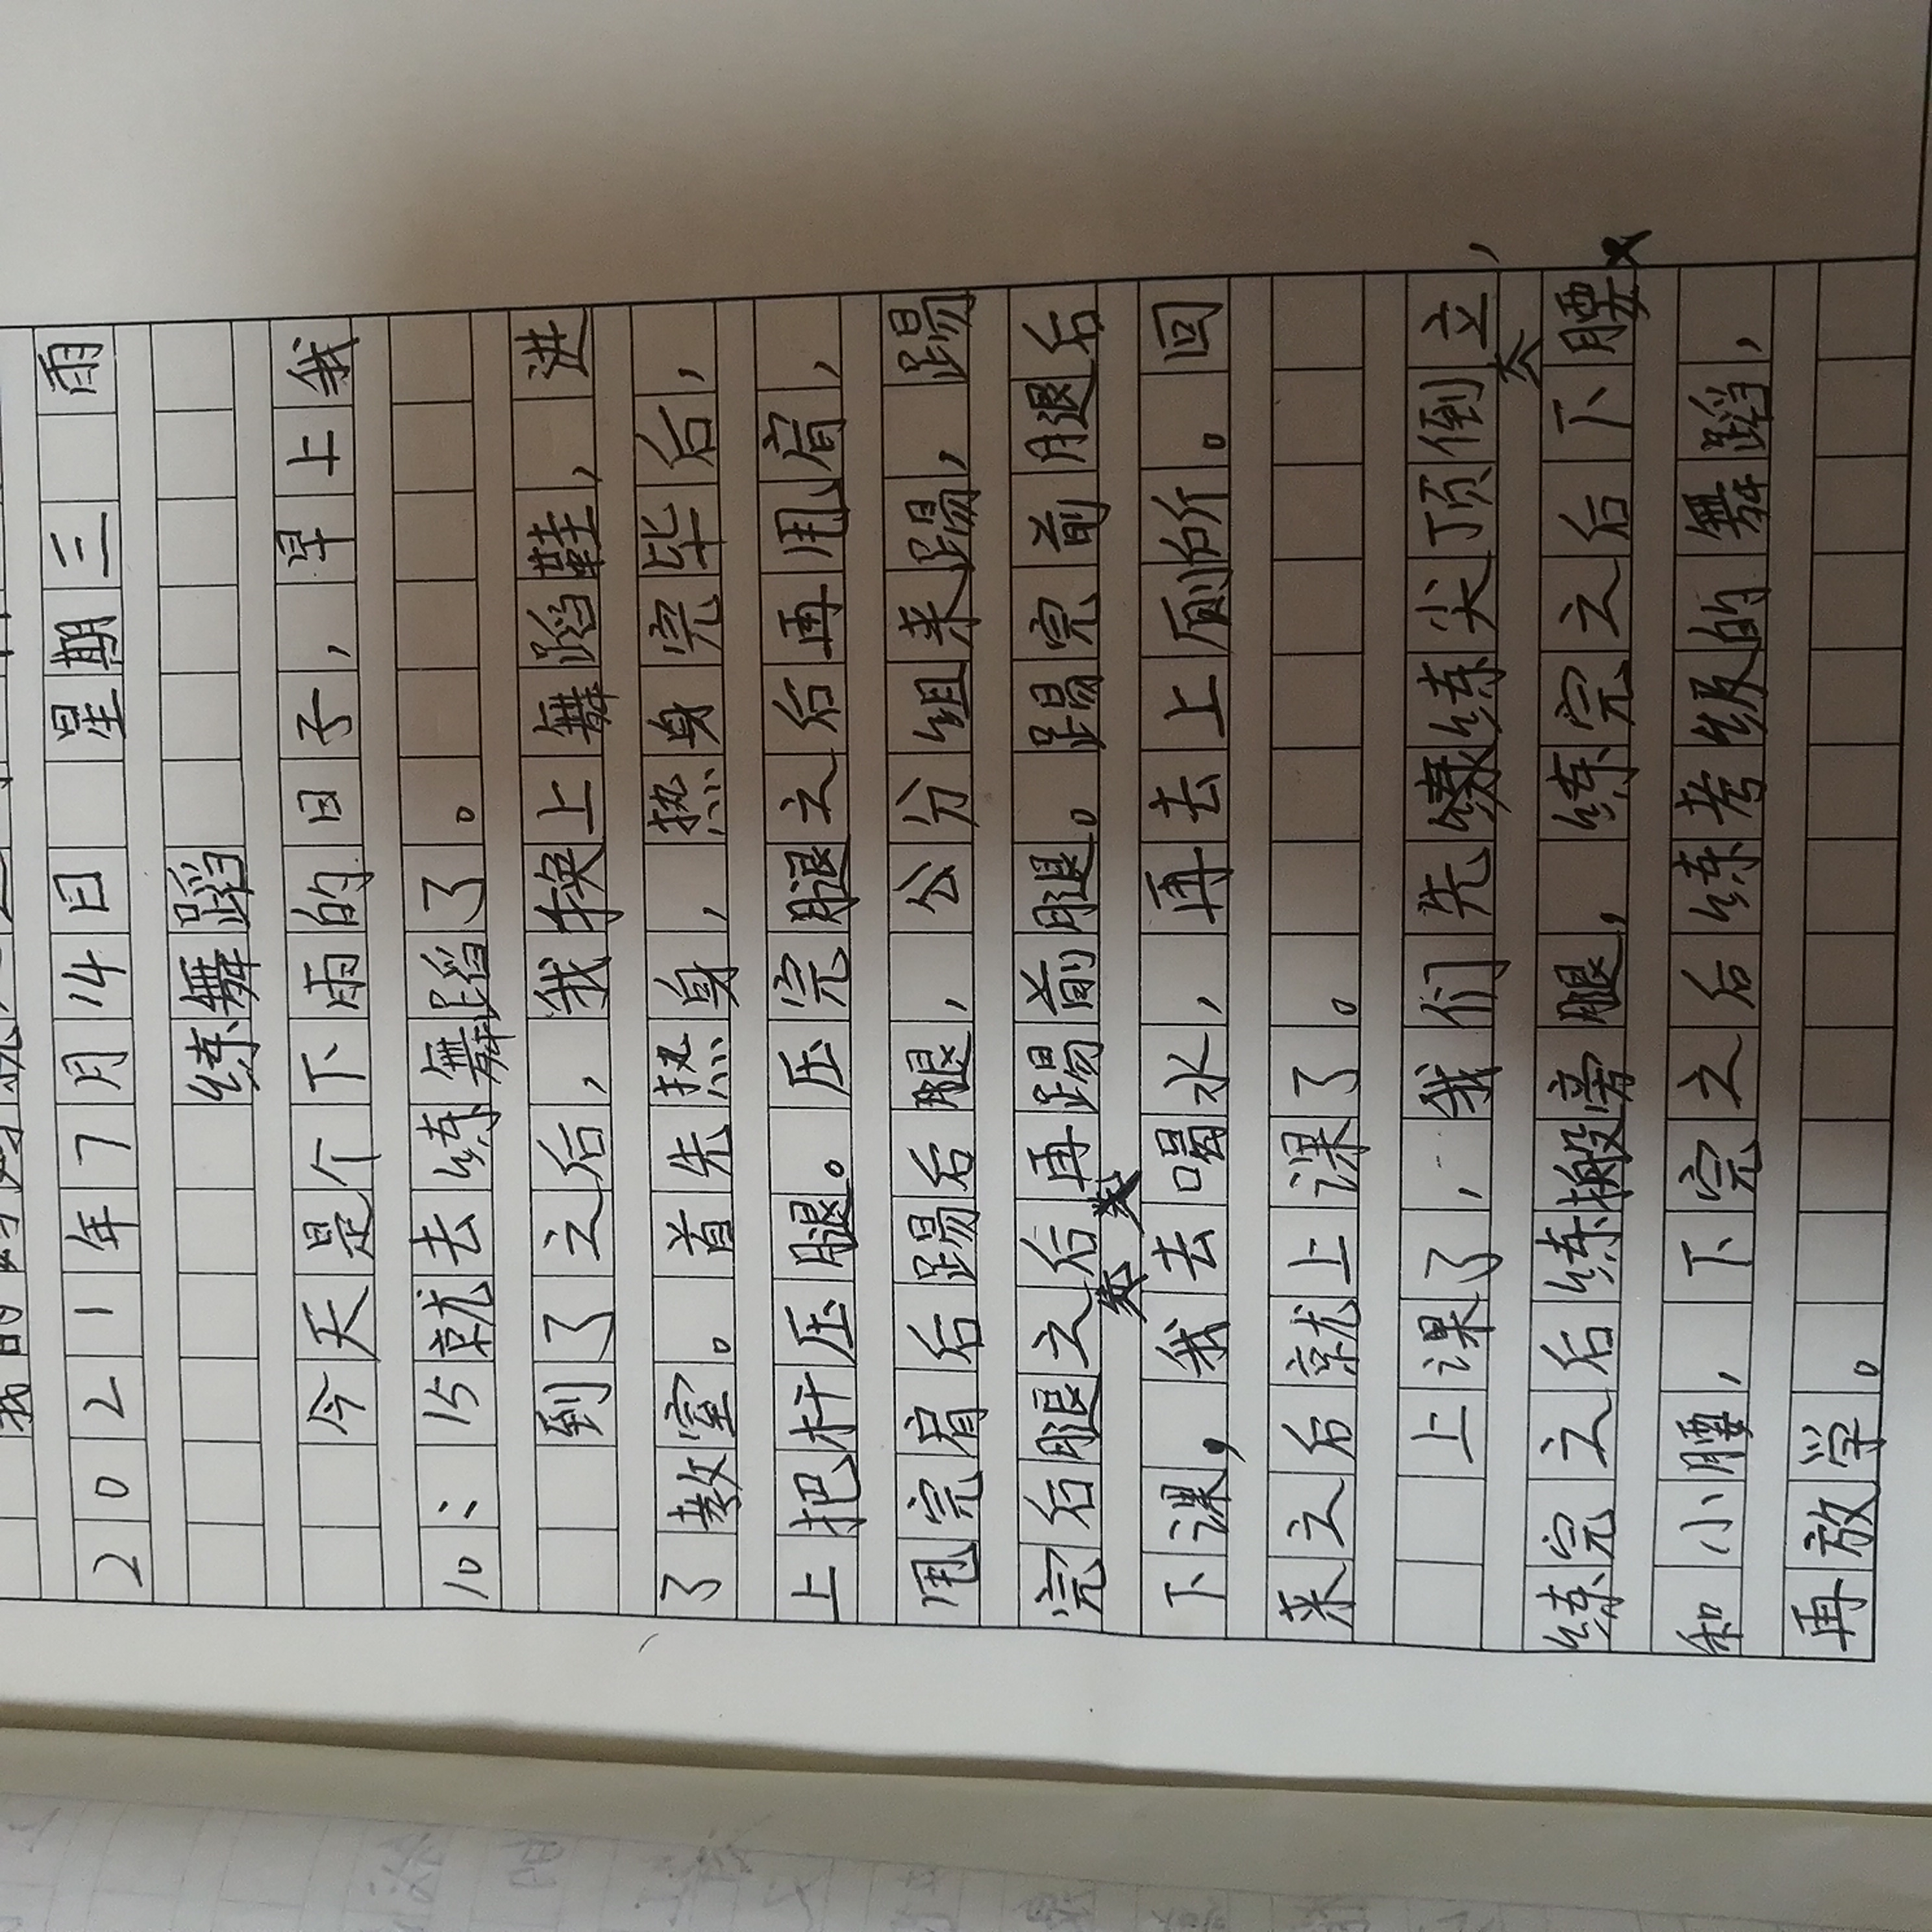 我的
2021年7月14日 星期三 雨
练舞蹈
今天是个下雨的日子，早上我
10：15就去练舞蹈了。
到了之后，我换上舞蹈鞋，进
了教室。首先热身，热身完毕后，
上把杆压腿。压完腿之后再甩肩，
甩完肩后踢后腿，公分组来踢，踢
完后腿之后再踢前腿。踢完前腿后
下课，我去喝水，再去上厕所。回
来之后就上课了。
上课了，我们先练练尖顶倒立，
练完之后练搬旁腿，练完之后下大腰
和小腰，下完之后练考级的舞蹈，
再放学。